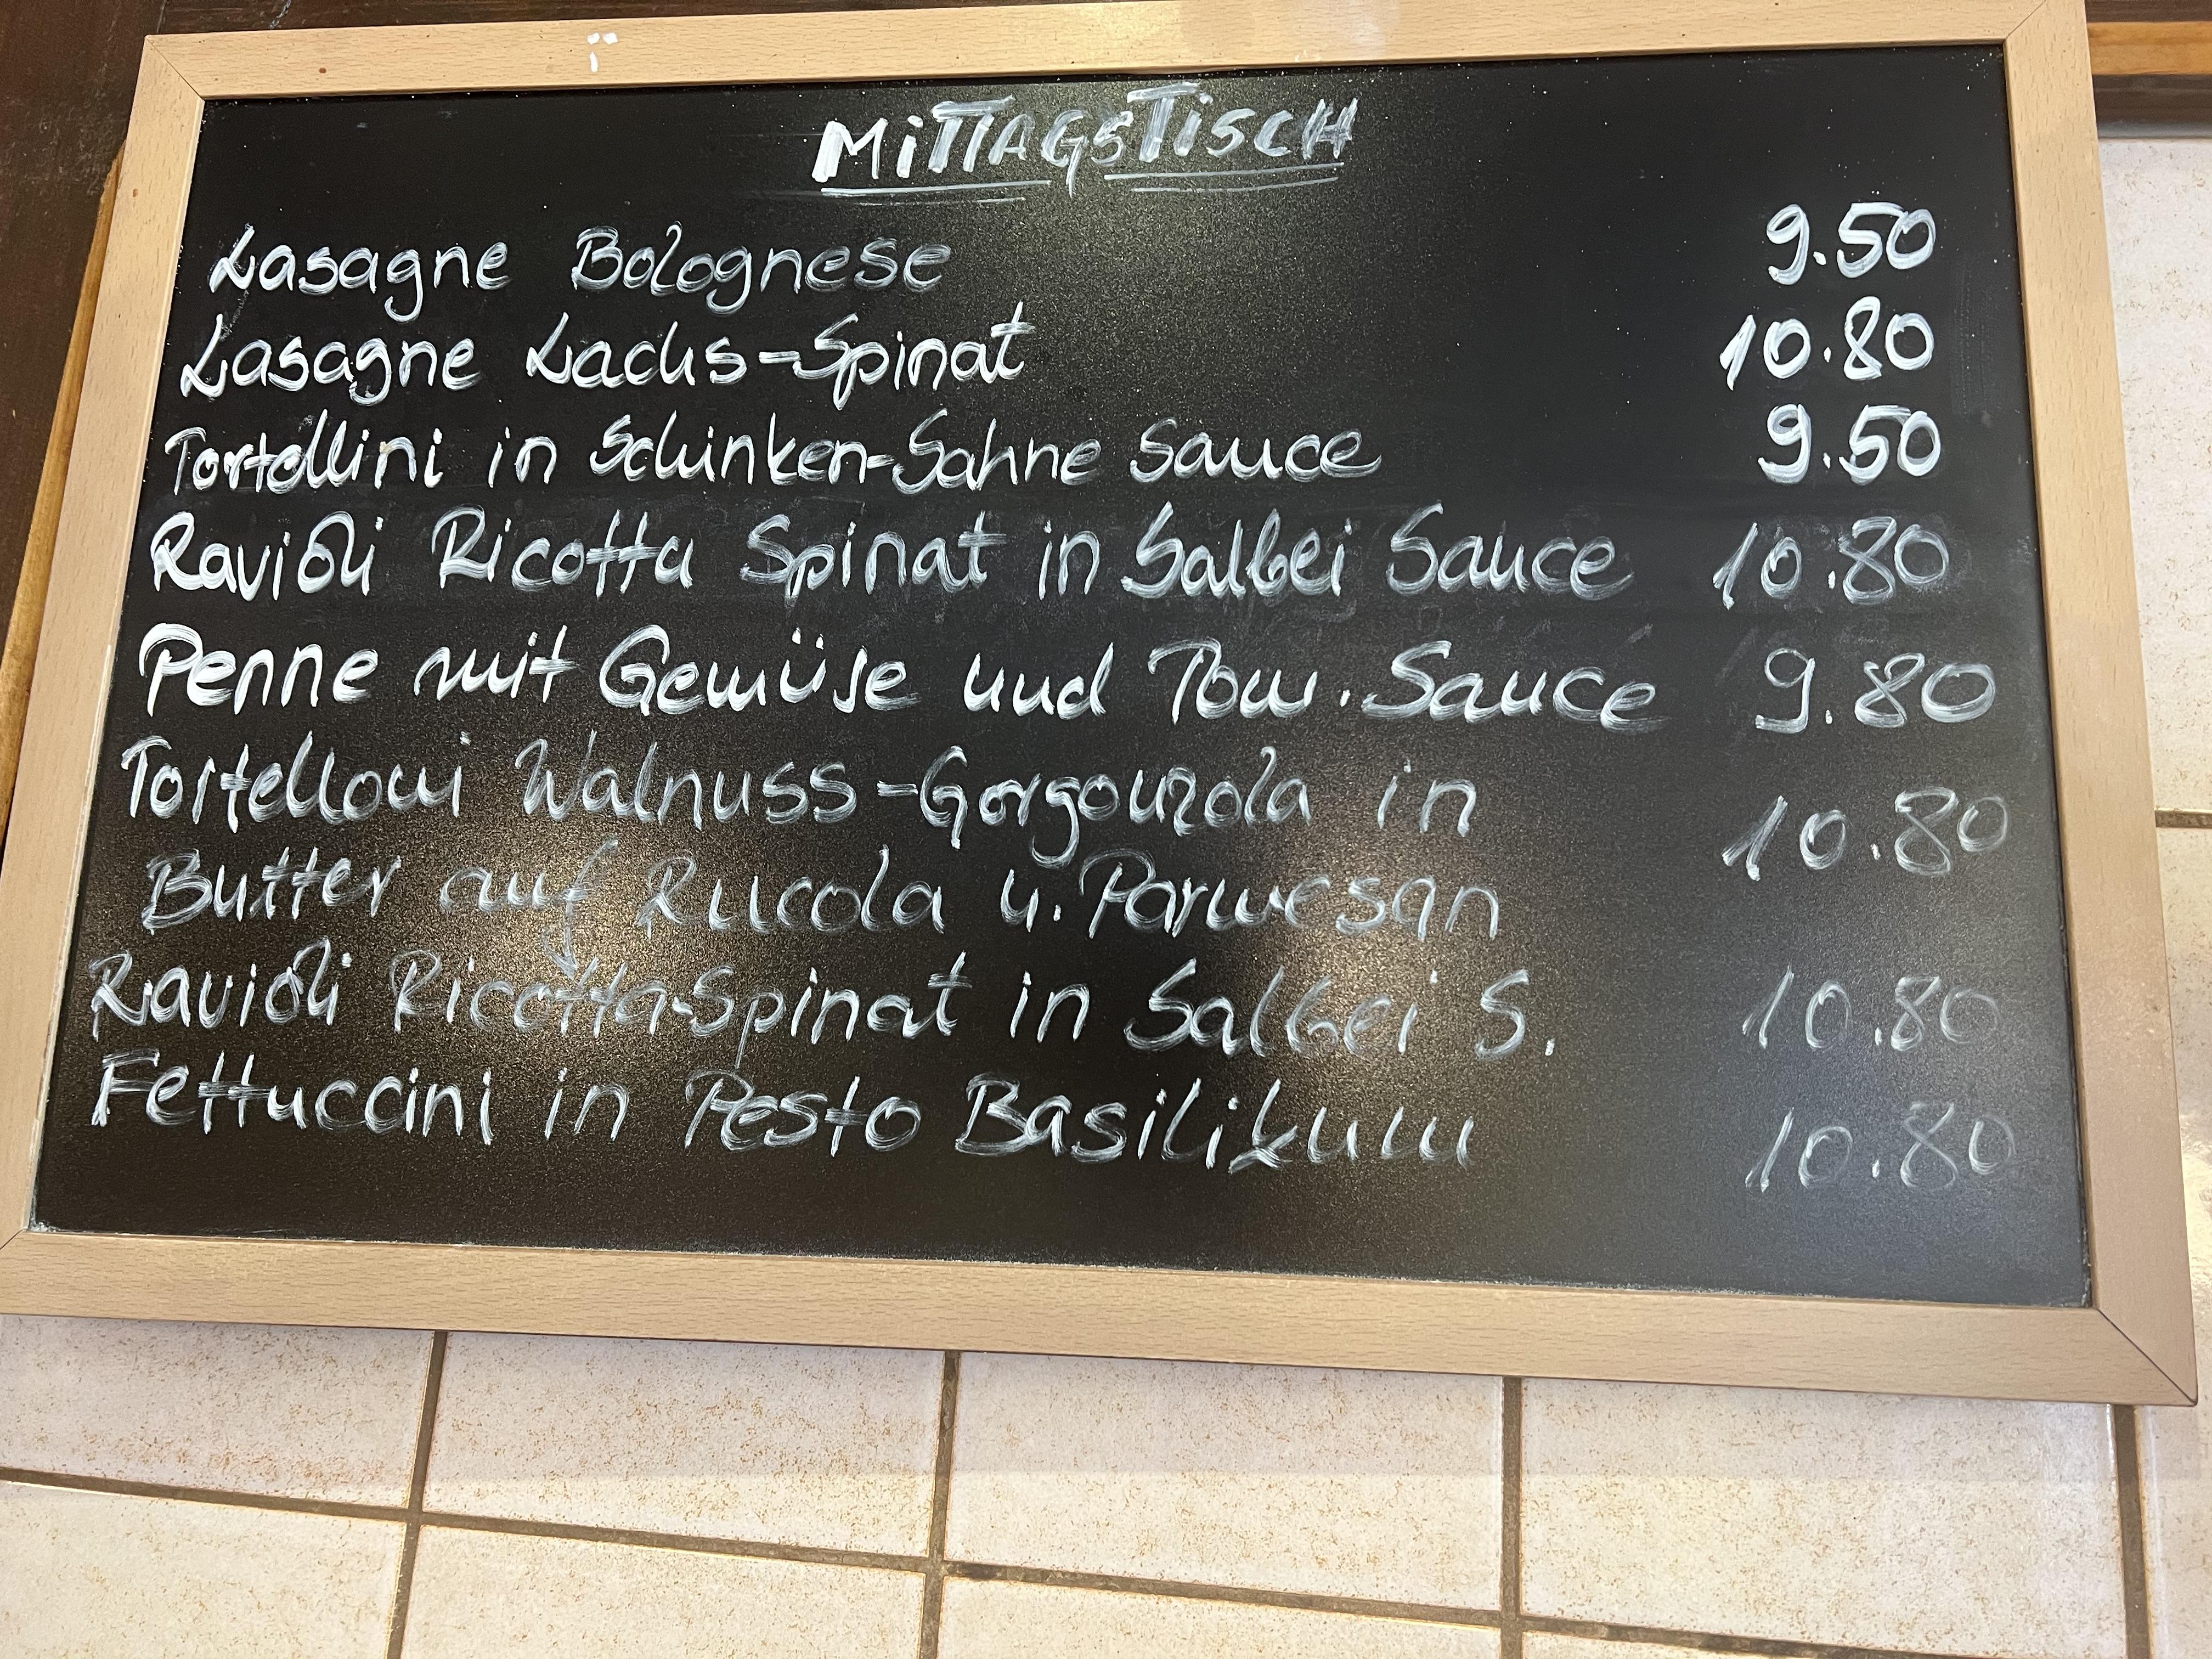 MiTTAGSTiSCH
Lasagne Bolognese 9.50
Lasagne Lachs-Spinat 10.80
Tortellini in Schinken-Sahne Sauce 9.50
Ravioli Ricotta Spinat in Salbei Sauce 10.80
Penne mit Gemüse und Tom. Sauce 9.80
Tortelloni Walnuss-Gorgonzola in 10.80
Butter auf Rucola u. Parmesan
Ravioli Ricotta-Spinat in Salbei S. 10.80
Fettuccini in Pesto Basilikum 10.80